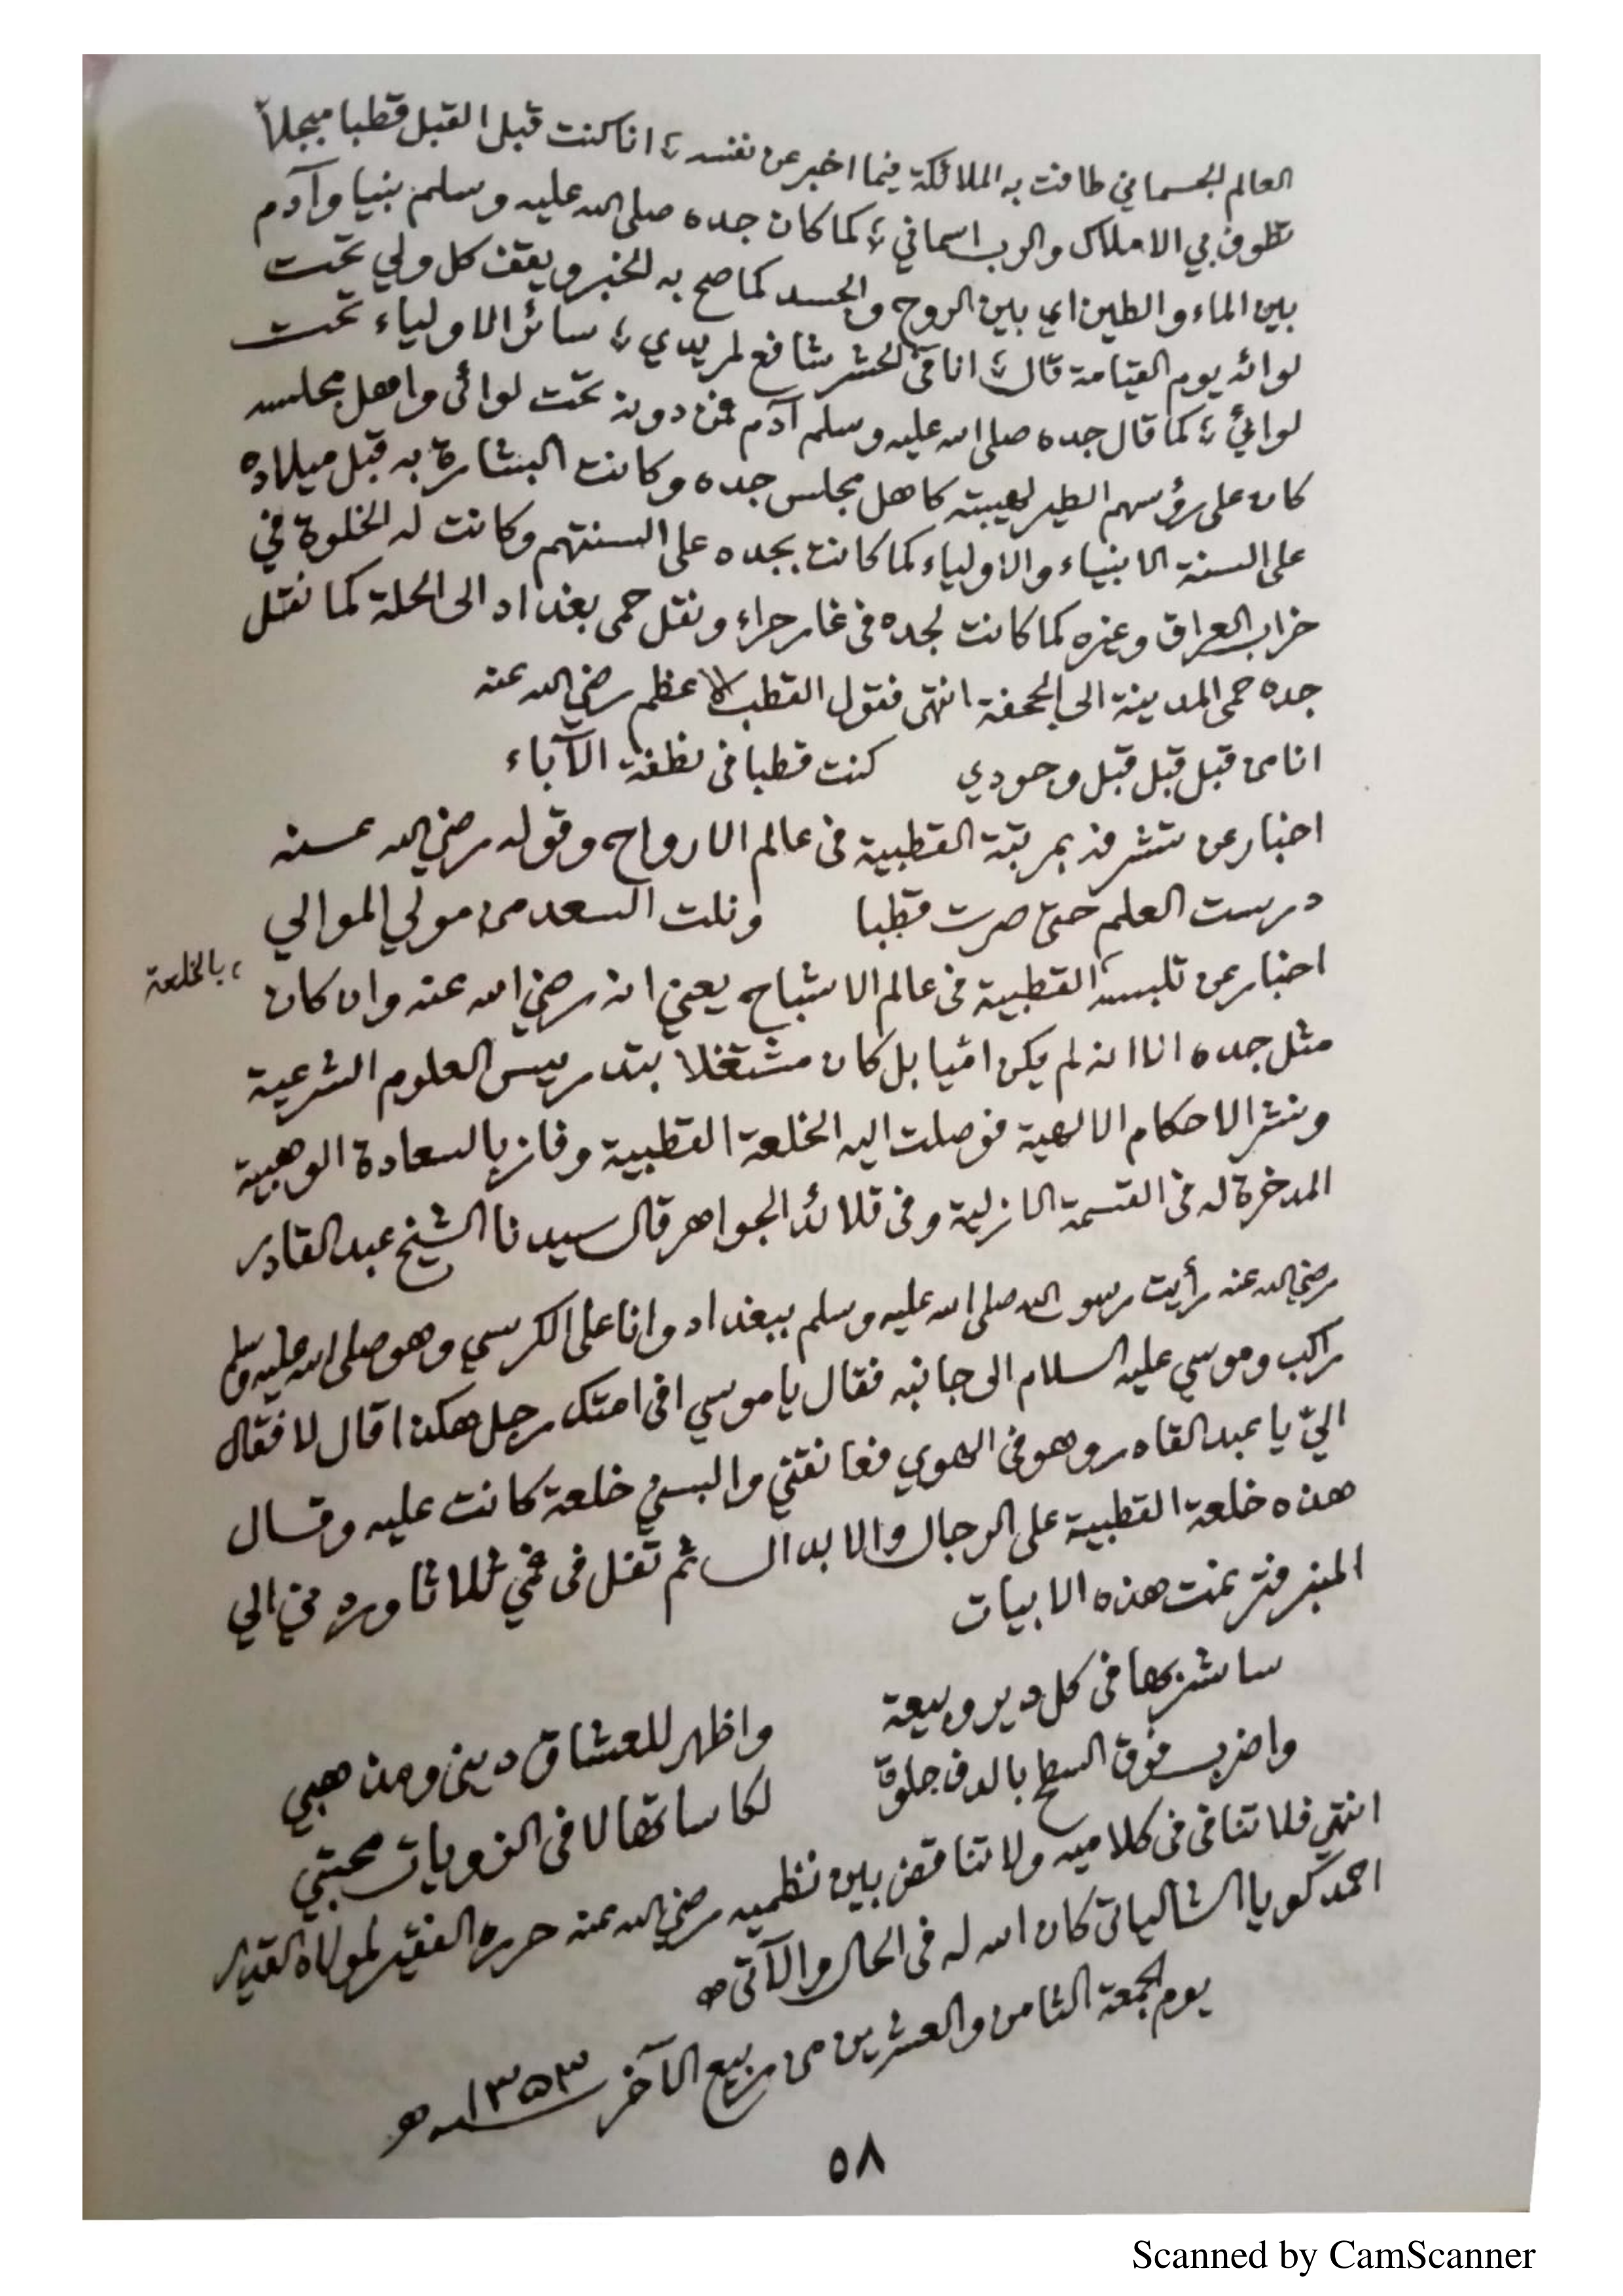 العالم الجسماني طافت به الملائكة فيما اخبر عن نفسه ؛ انا كنت قبل القبل قطبا مبجلاً
تطوف بي الاملاك والرب اسماني ؛ كما كان جده صلى الله عليه وسلم نبيا وآدم
بين الماء والطين اي بين الروح والجسد كما صح به الخبر ويقف كل ولي تحت
لوائه يوم القيامة قال ؛ انا في الحشر شافع لمريدي ؛ سائر الاولياء تحت
لوائي ؛ كما قال جده صلى الله عليه وسلم آدم فمن دونه تحت لوائى واهل مجلسه
كان على رؤسهم الطير لهيبته كاهل مجلس جده وكانت البشارة به قبل ميلاده
على السنة الانبياء والاولياء كما كانت بجده على السنتهم وكانت له الخلوة في
خراب العراق وغيره كما كانت لجده فى غار حراء ونقل حمى بغداد الى الحلة كما نقل
جده حمى المدينة الى الجحفة انتهى فقول القطب الاعظم رضي الله عنه
انا من قبل قبل قبل وجودي كنت قطبا فى نطفة الآباء
اخبار عن تشرفه بمرتبة القطبية فى عالم الارواح وقوله رضي الله عنه
درست العلم حتى صرت قطبا ونلت السعد من مولي الموالي
اخبار عن تلبسه القطبية فى عالم الاشباح يعني انه رضي الله عنه وان كان
، بالخلعة
مثل جده انا انه لم يكن اميا بل كان مشتغلا بتدريس العلوم الشرعية
ونشر الاحكام الالهية فوصلت اليه الخلعة القطبية وفاز بالسعادة الوهبية
المدخرة له فى القسمة الازلية وفى قلائد الجواهر قال سيدنا الشيخ عبد القادر
رضي الله عنه رأيت رسول الله صلى الله عليه وسلم ببغداد وانا على الكرسي وهو صلى الله عليه وسلم
راكب وموسي عليه السلام الى جانبه فقال يا موسي افى امتك رجل هكذا قال لا فقال
اليّ يا عبد القادر وهو فى الهوي فعانقني والبسني خلعة كانت عليه وقال
هذه خلعة القطبية على الرجال والابدال ثم تفل فى فمي ثلاثا وردني الي
المنبر فترنمت هذه الابيات
سا شربها فى كل دير وبيعة واظهر للعشاق ديني ومذهبي
واضرب فوق السطح بالدف جلوة لكاساتها لا فى الزويات محبتي
انتهي فلا تنافى فى كلاميه ولا تناقض بين نظميه رضي الله عنه حرره الفقير لمولاه القدير
احمد كويا الشالياتى كان الله له فى الحال والآتى ھ
يوم الجمعة الثامن والعشرين من ربيع الآخر ١٣٥٣ـه
٥٨
Scanned by CamScanner